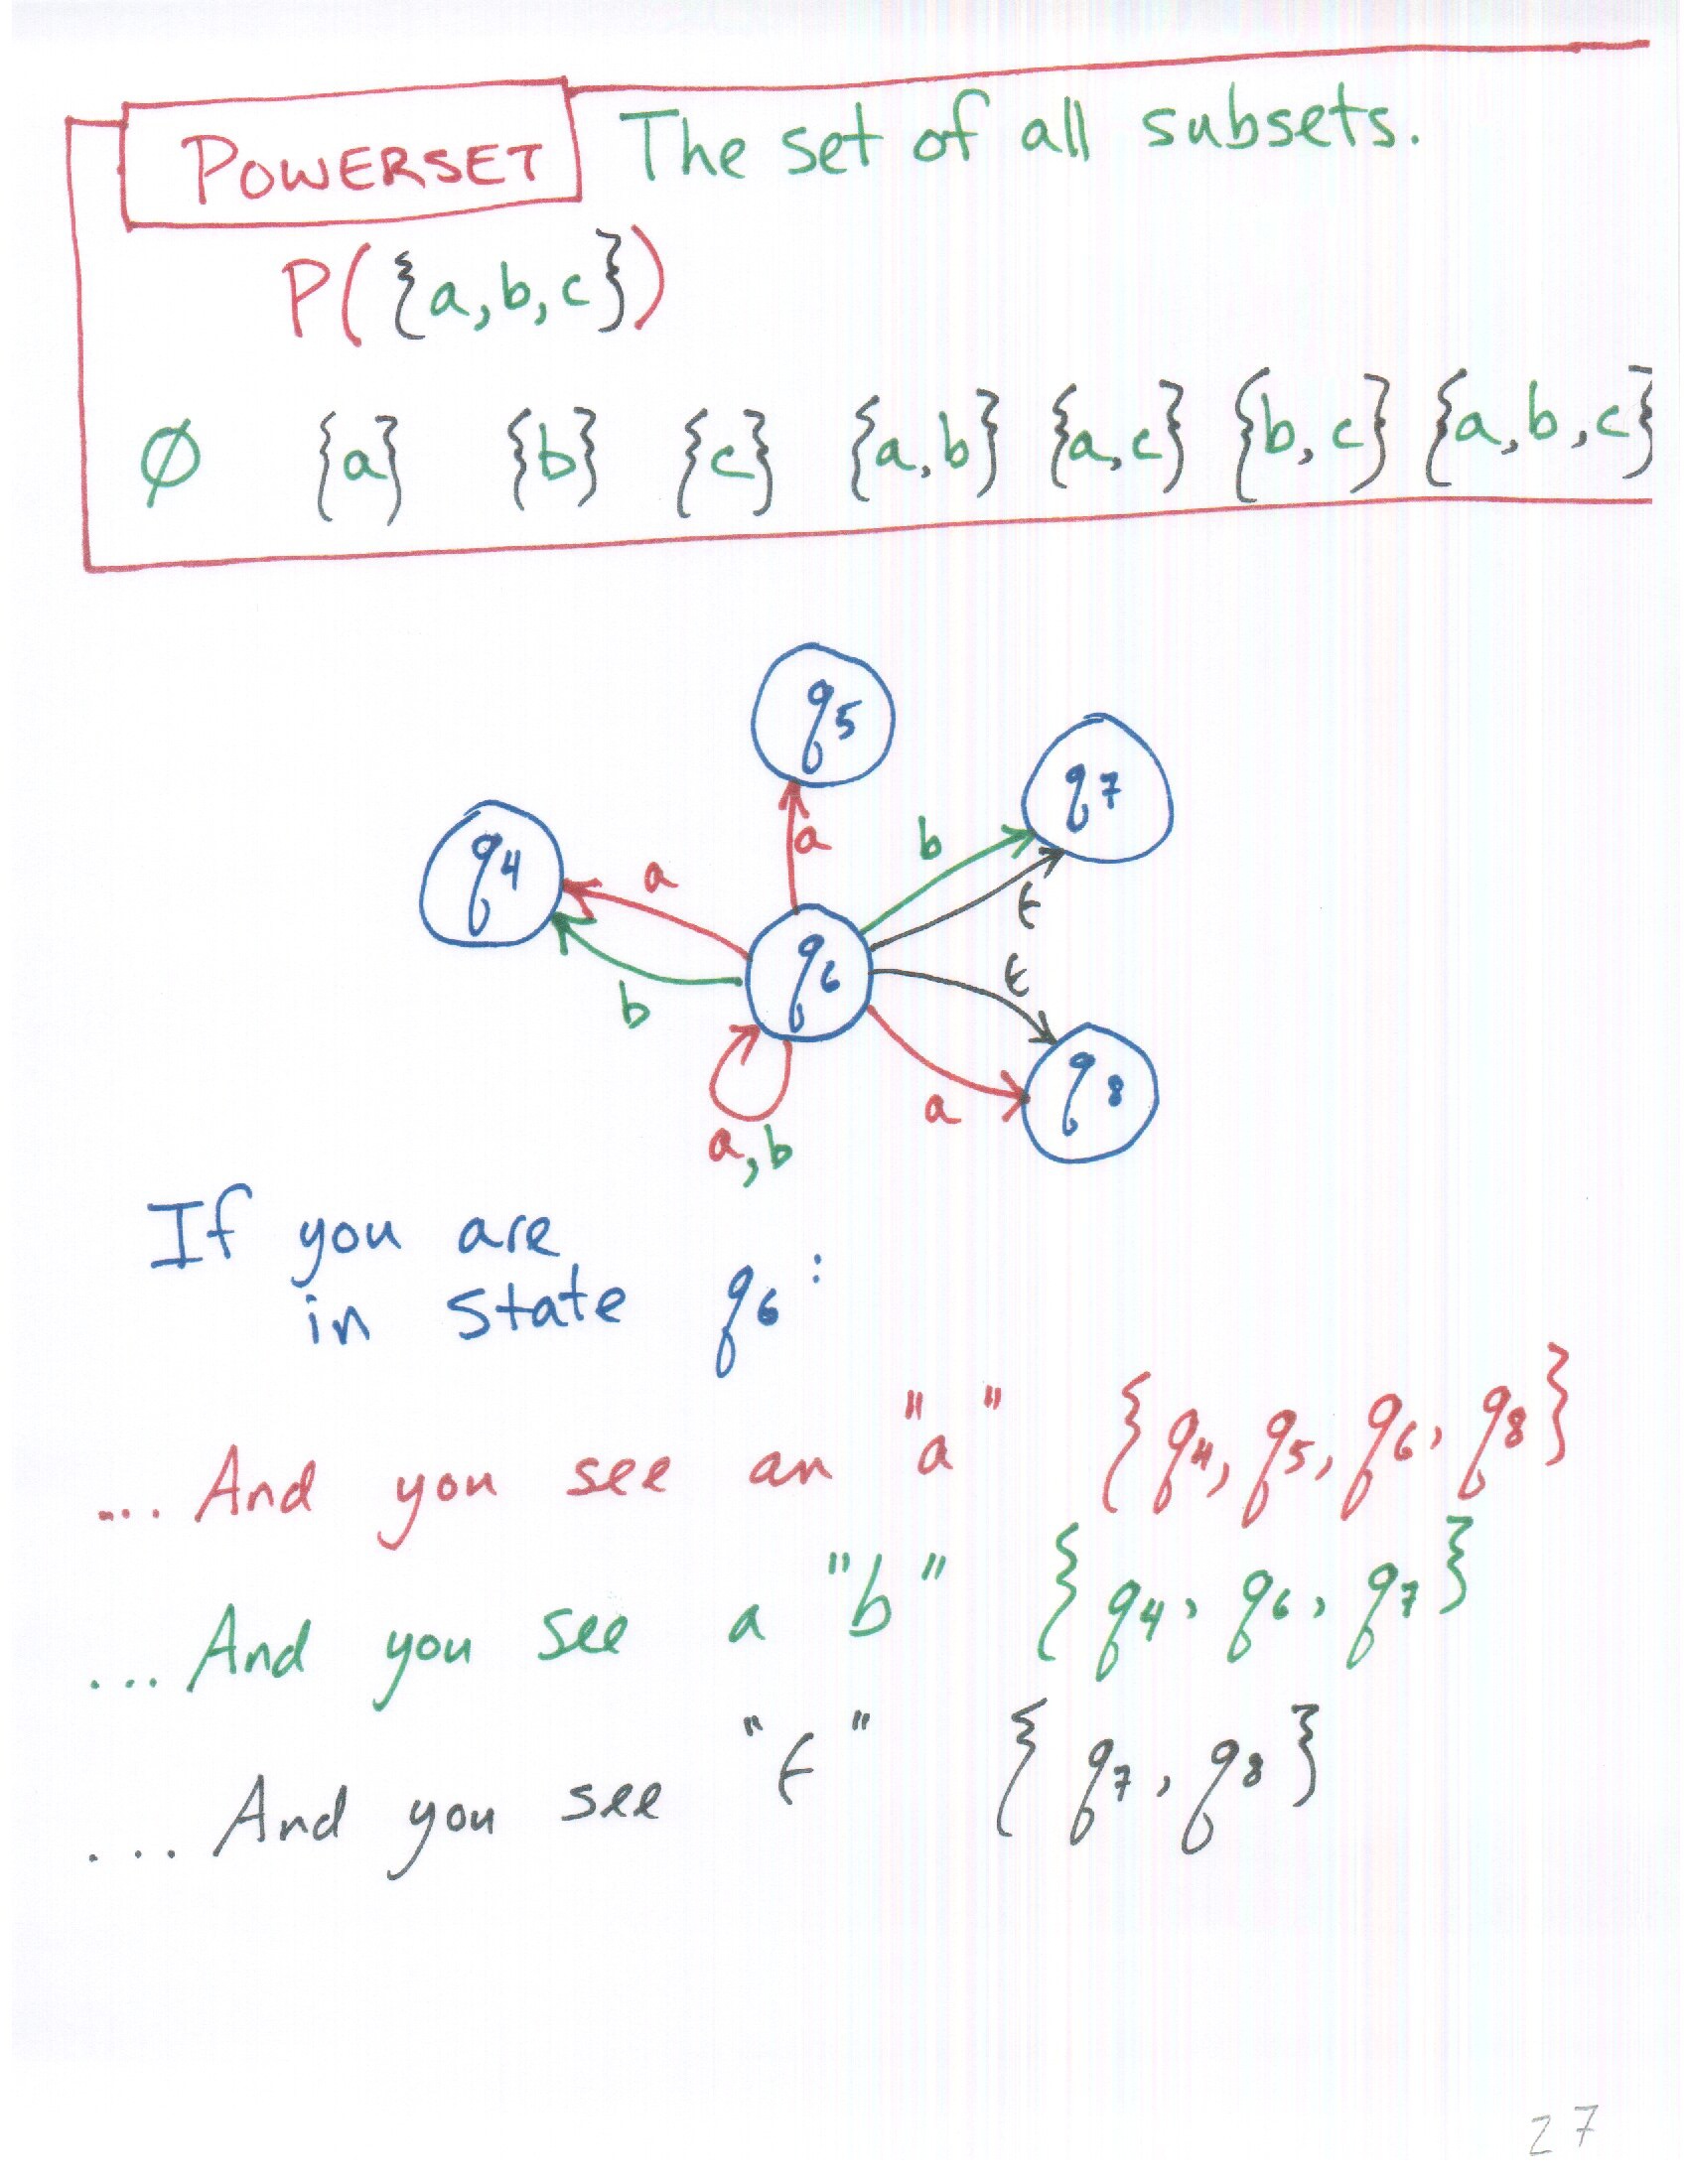 POWERSET The set of all subsets.
P({a,b,c})
∅ {a} {b} {c} {a,b} {a,c} {b,c} {a,b,c}
q5
q7
q4
a
a
b
ε
q6
b
ε
q8
a
a,b
If you are
in state q6:
... And you see an "a" {q4, q5, q6, q8}
... And you see a "b" {q4, q6, q7}
.... And you see "ε" {q7, q8}
27